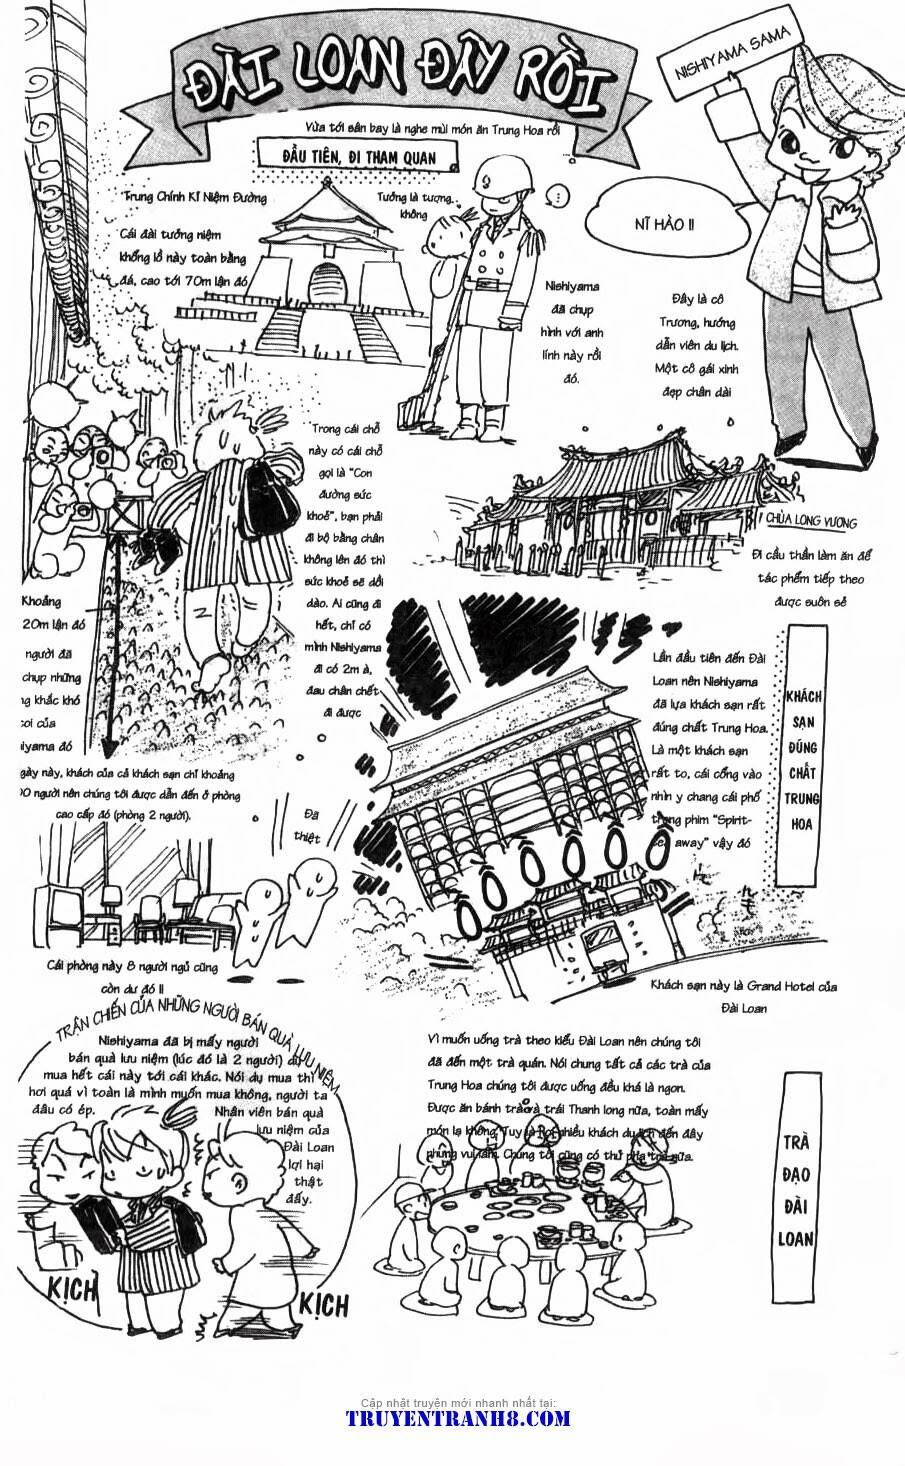 ĐÀI LOAN ĐÂY RỒI
NISHIYAMA SAMA
Vừa tới sân bay là nghe mùi món ăn Trung Hoa rồi
ĐẦU TIÊN, ĐI THAM QUAN
NĨ HẢO !!
Trung Chính Kỉ Niệm Đường
Tưởng là tượng,
không
Cái đài tưởng niệm
khổng lồ này toàn bằng
đá, cao tới 70m lận đó
Nishiyama
đã chụp
hình với anh
lính này rồi
đó.
Đây là cô
Trương, hướng
dẫn viên du lịch.
Một cô gái xinh
đẹp chân dài
Trong cái chỗ
này có cái chỗ
gọi là "Con
đường sức
khoẻ", bạn phải
đi bộ bằng chân
không lên đó thì
sức khoẻ sẽ dồi
dào. Ai cũng đi
hết, chỉ có
mình Nishiyama
đi có 2m à,
đau chân chết
đi được
CHÙA LONG VƯƠNG
Đi cầu thần làm ăn để
tác phẩm tiếp theo
được suôn sẻ
Khoảng
20m lận đó
người đã
chụp những
khắc khó
coi của
iyama đó
KHÁCH
SẠN
ĐÚNG
CHẤT
TRUNG
HOA
Lần đầu tiên đến Đài
Loan nên Nishiyama
đã lựa khách sạn rất
đúng chất Trung Hoa.
Là một khách sạn
rất to, cái cổng vào
nhìn y chang cái phố
trong phim "Spirit-
away" vậy đó
gày này, khách của cả khách sạn chỉ khoảng
người nên chúng tôi được dẫn đến ở phòng
cao cấp đó (phòng 2 người).
Đã
thiệt
Ồ Ồ Ồ Ồ Ồ Ồ
Cái phòng này 8 người ngủ cũng
còn dư đó !!
Khách sạn này là Grand Hotel của
Đài Loan
TRẬN CHIẾN CỦA NHỮNG NGƯỜI BÁN QUÀ LƯU NIỆM
Nishiyama đã bị mấy người
bán quà lưu niệm (lúc đó là 2 người) dụ
mua hết cái này tới cái khác. Nói dụ mua thì
hơi quá vì toàn là mình muốn mua không, người ta
đâu có ép.
Nhân viên bán quà
lưu niệm của
Đài Loan
lợi hại
thật
đấy.
KỊCH
KỊCH
Vì muốn uống trà theo kiểu Đài Loan nên chúng tôi
đã đến một trà quán. Nói chung tất cả các trà của
Trung Hoa chúng tôi được uống đều khá là ngon.
Được ăn bánh trà và trái Thanh long nữa, toàn mấy
món lạ không. Tuy là nhiều khách du lịch đến đây
nhưng vui lắm. Chúng tôi cũng có thử pha trà nữa.
TRÀ
ĐẠO
ĐÀI
LOAN
Cập nhật truyện mới nhanh nhất tại:
TRUYENTRANH8.COM